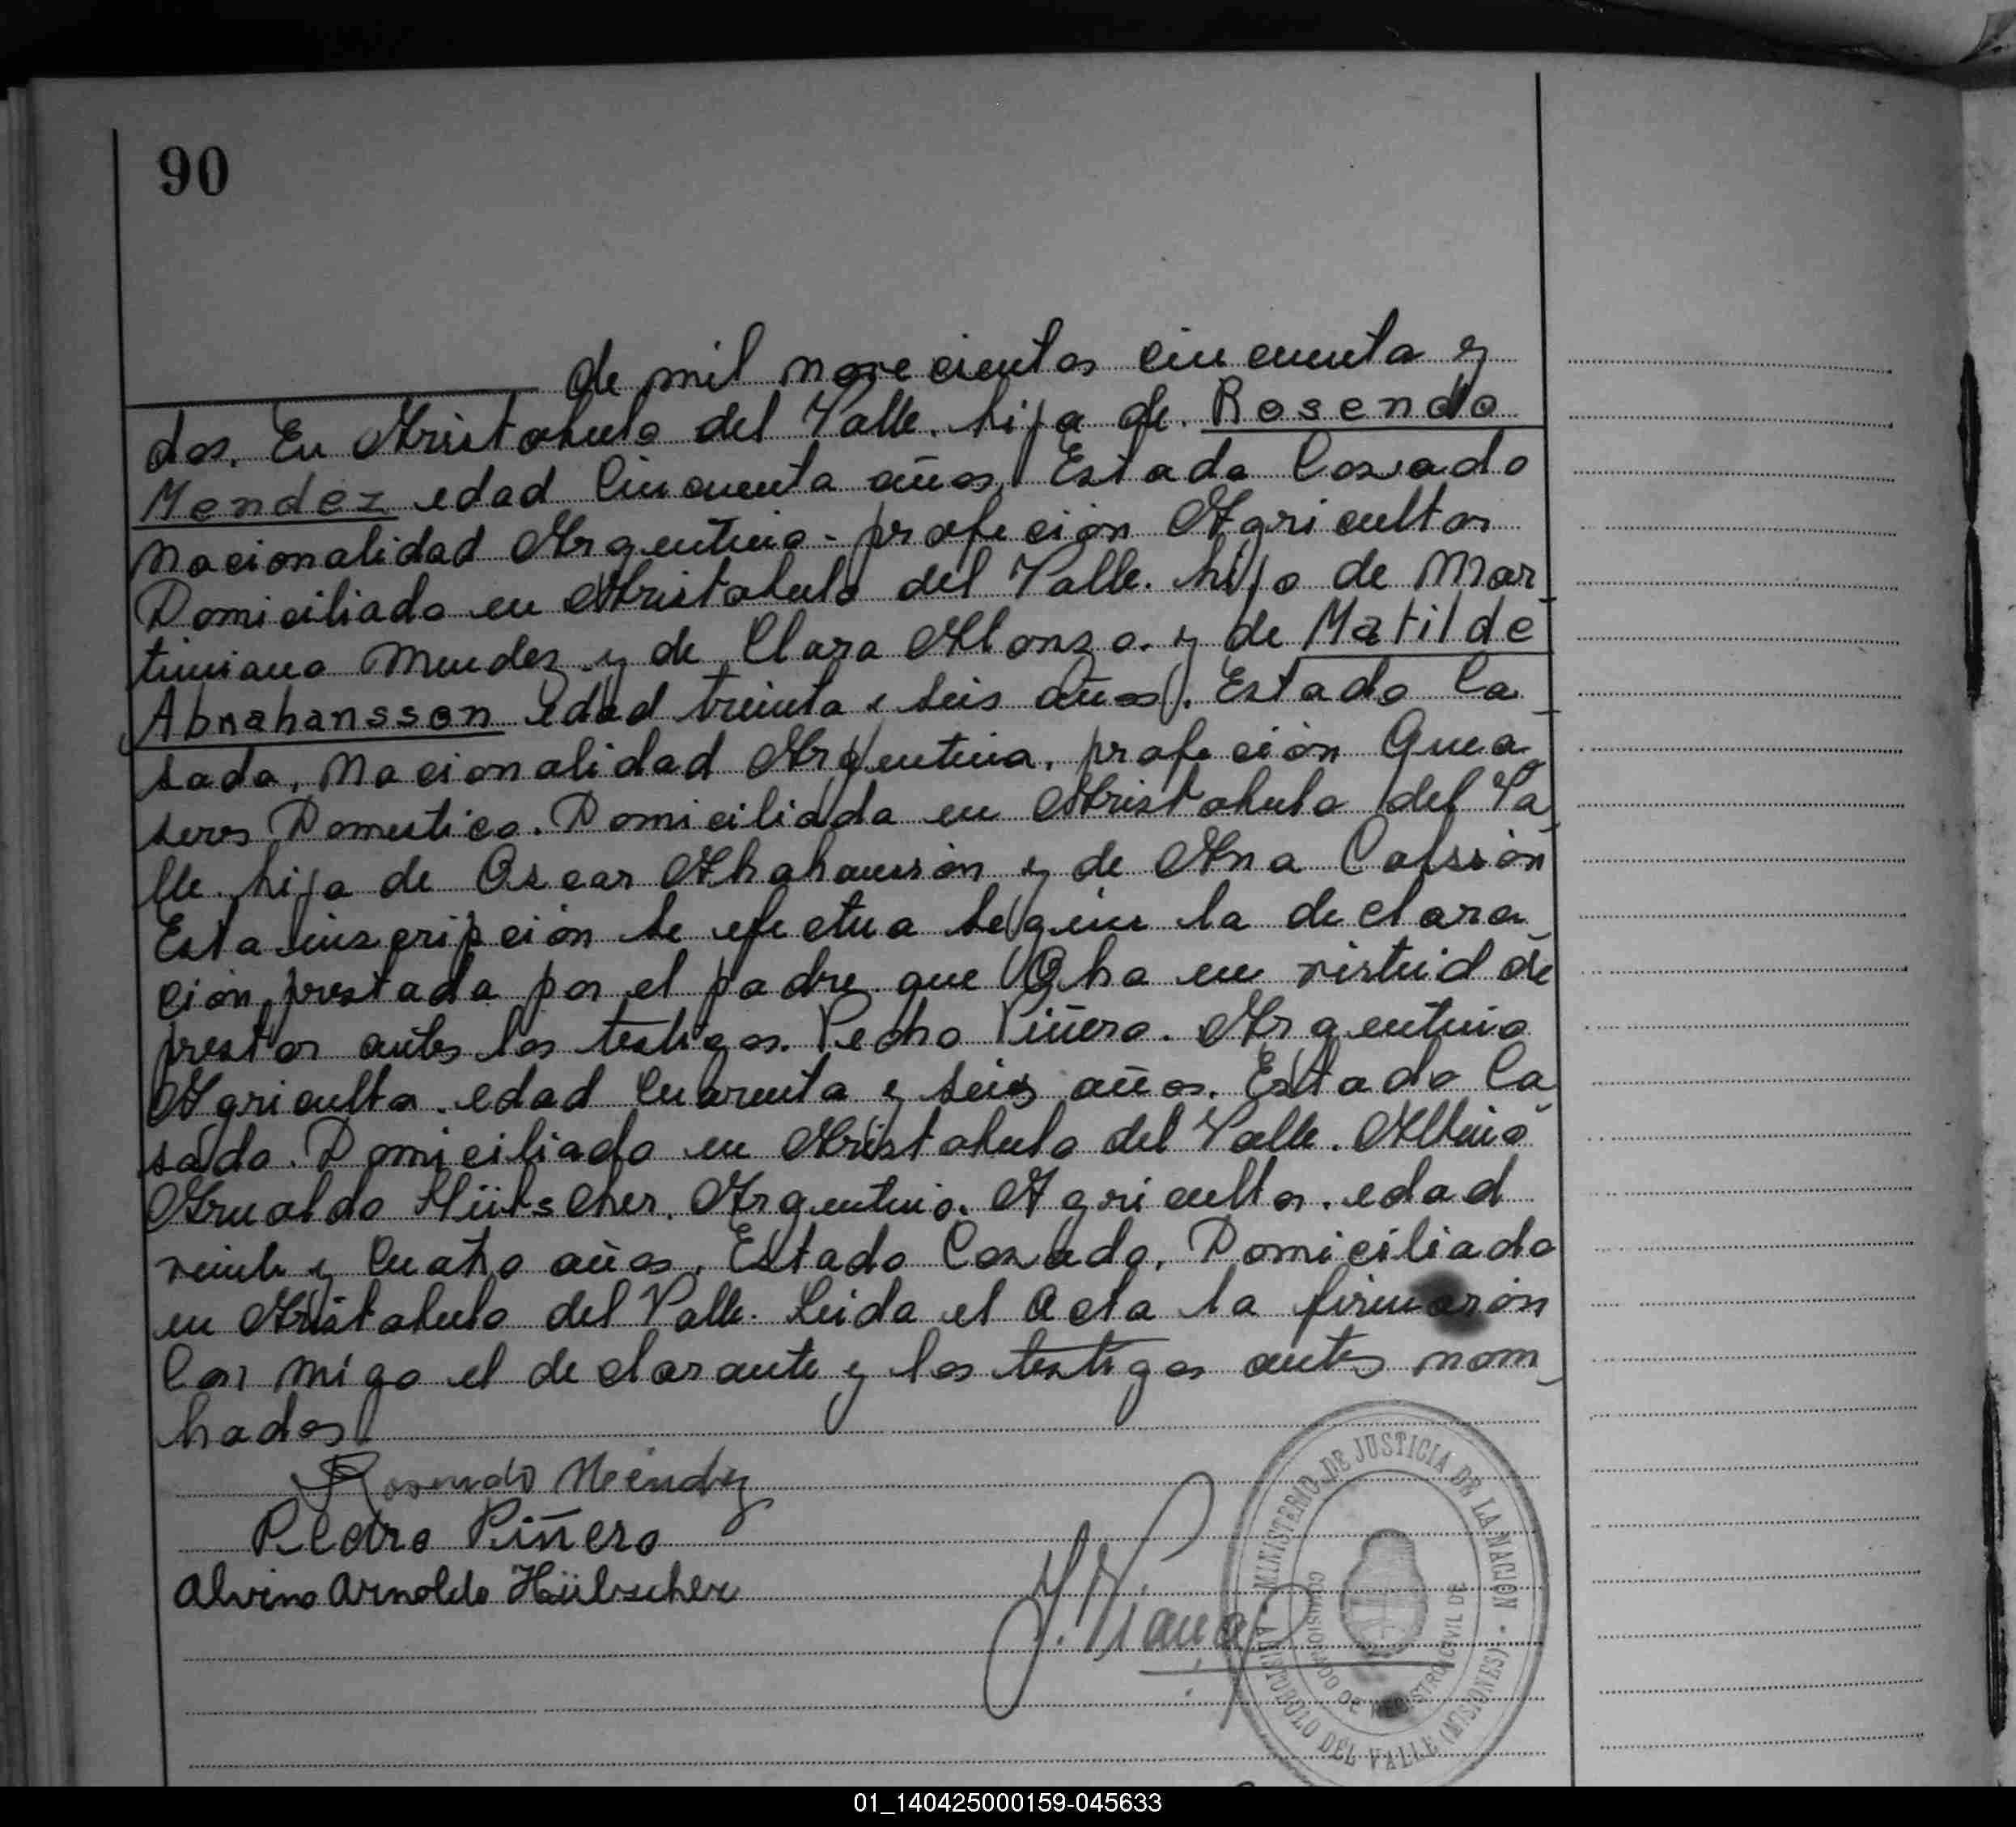 90
de mil nove cientos cincuenta y
dos. En Aristobulo del Valle. hija de. Rosendo
Mendez edad Cincuenta años, Estado Casado
Nacionalidad Argentino - profecion Agricultor
Domiciliado en Aristobulo del Valle. hijo de Mar-
tiniano Mendez y de Clara Alonzo. y de Matilde
Abrahansson edad treinta y seis años. Estado Ca-
sada, Nacionalidad Argentina, profecion Quea-
seres Domestico. Domiciliada en Aristobulo del Va-
lle. hija de Oscar Abrahansson y de Ana
Esta inscripcion se efectua según la declara-
cion, prestada por el padre que Obra en vistuid de
prestar antes los testigos. Pedro Piñero. Argentino
Agricultor. edad Cuarenta y seis años. Estado Ca-
sado. Domiciliado en Aristobulo del Valle. Albino
Arnoldo Hübscher. Argentino. Agricultor. edad
veinte y Cuatro años. Estado Casado. Domiciliado
en Aristobulo del Valle. Leida el Acta la firmarón
Con migo el declarante y los testigos antes nom-
brados
Rosendo Méndez
Pedro Piñero
Alvino Arnoldo Hübscher
MINISTERIO DE JUSTICIA DE LA NACION
COMISIONADO DE REGISTRO CIVIL DE
ARISTOBULO DEL VALLE (MISIONES)
01_140425000159-045633